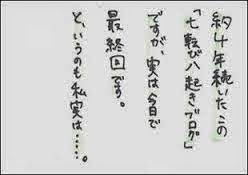 約4年続いたこの
「七転び八起きブログ」
ですが、実は今日で
最終回です。
と、いうのも私実は……。